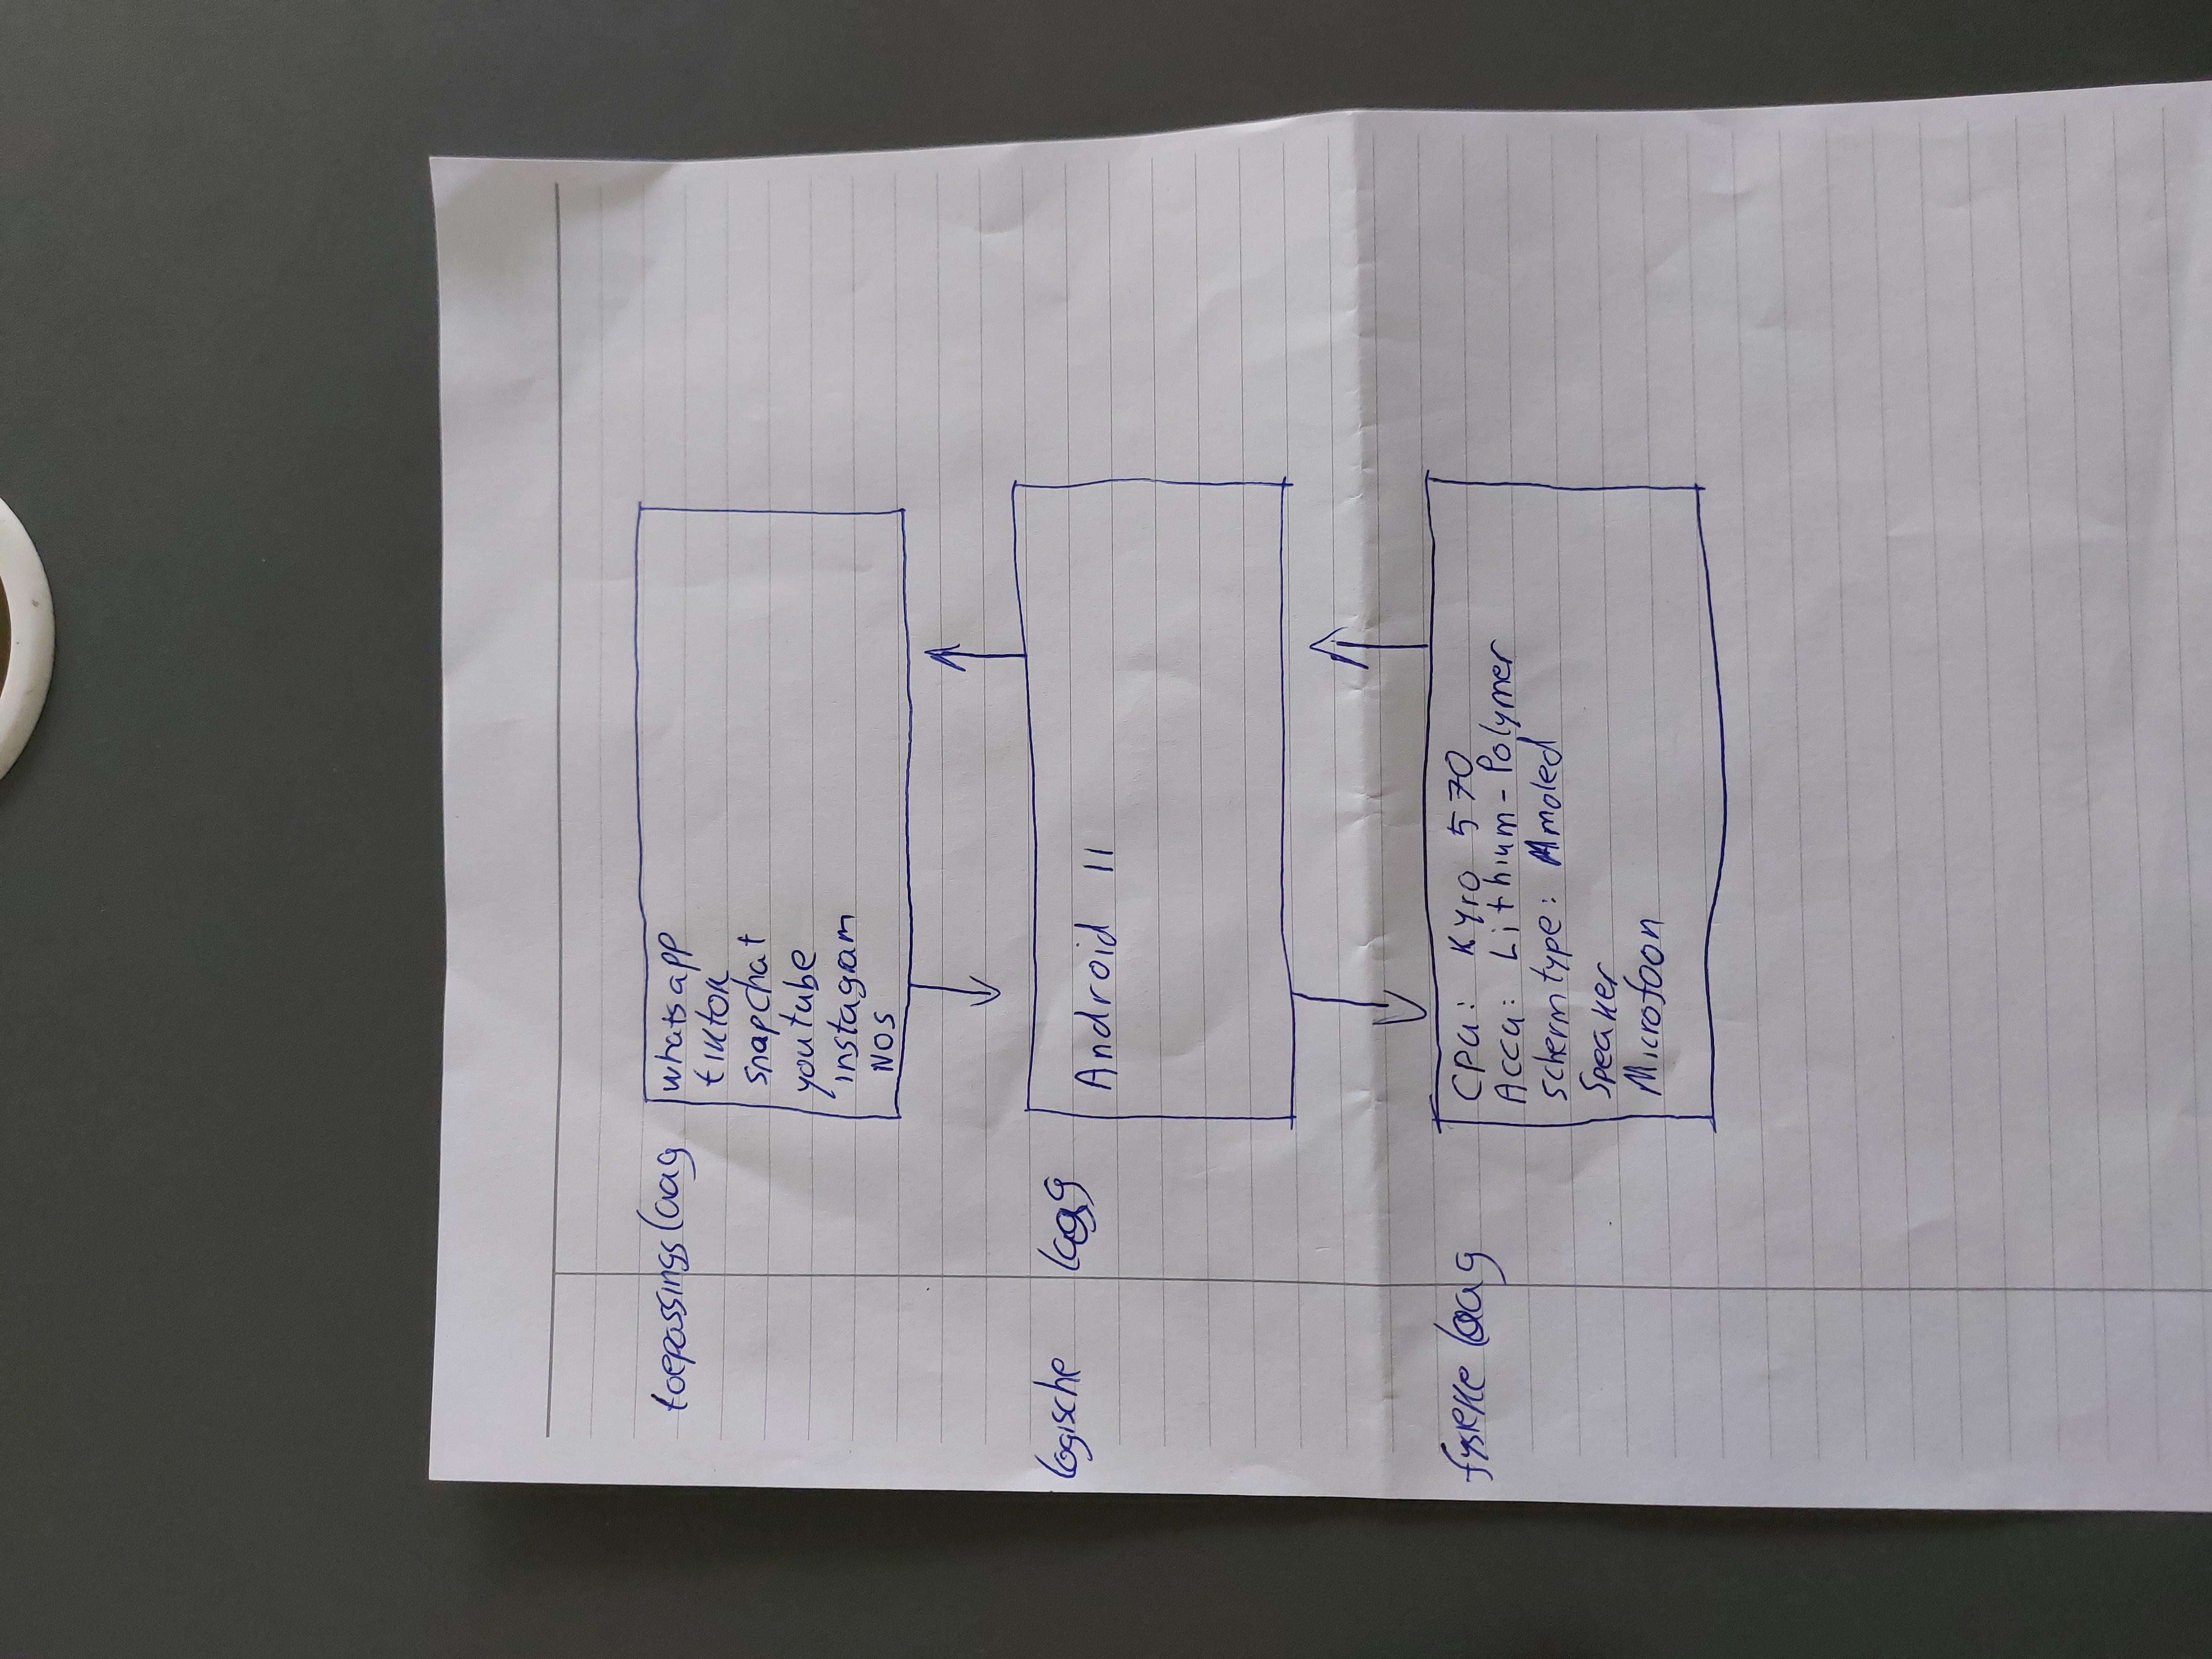 toepassingslaag
whatsapp
tiktok
snapchat
youtube
instagram
NOS
logische laag
Android 11
fysieke laag
CPU: Kyro 570
Accu: Lithium-Polymer
schermtype: Amoled
Speaker
Microfoon